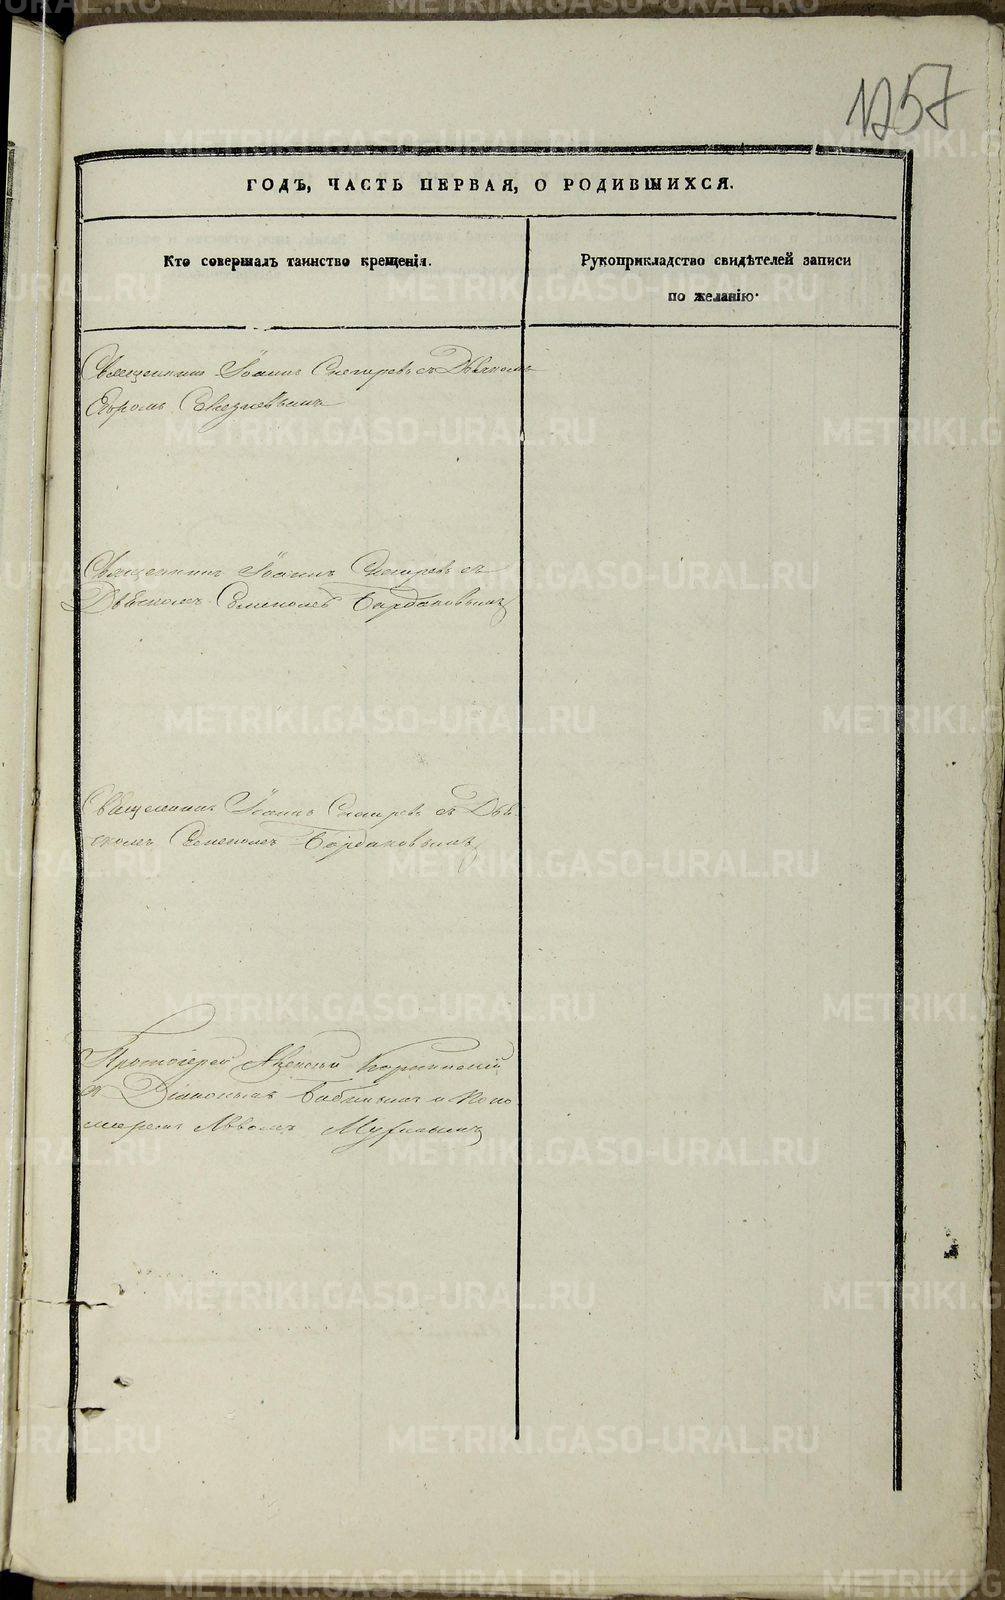 1257
ГОДЪ, ЧАСТЬ ПЕРВАЯ, О РОДИВШИХСЯ.
Кто совершалъ таинство крещенія.
Рукоприкладство свидѣтелей записи
по желанію.
Священникъ Іоаннъ Снегиревъ съ Дьячкомъ
Егоромъ
Священникъ Іоаннъ Снегиревъ съ
Дьячкомъ Семеномъ Бардаковымъ
Священникъ Іоаннъ Снегиревъ съ Дья-
чкомъ Семеномъ Бардаковымъ
Протоіерей Алексѣй
съ Діакономъ Бабинымъ и Поно
маремъ Львомъ
METRIKI.GASO-URAL.RU